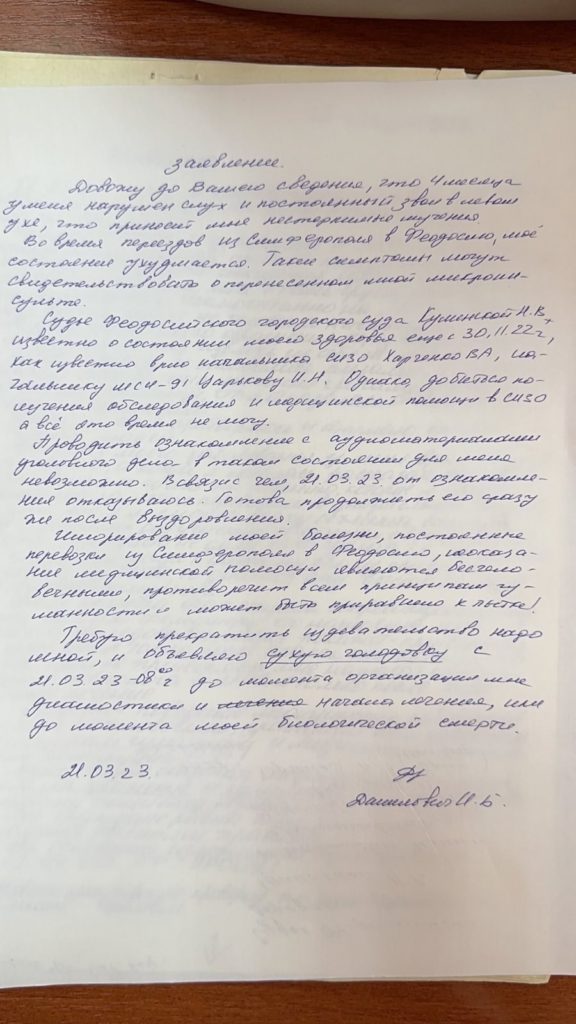 Заявление.
Довожу до Вашего сведения, что 4 месяца
у меня нарушен слух и постоянный звон в левом
ухе, что приносит мне нестерпимые мучения
Во время переездов из Симферополя в Феодосию, моё
состояние ухудшается. Такие симптомы могут
свидетельствовать о перенесенном мной микроин-
сульте.
Судье Феодосийского городского суда Кулинской Н.В.,
известно о состоянии моего здоровья еще с 30.11.22 г,
как известно врио начальника СИЗО Харченко ВА, на-
чальнику МСЧ-91 Царькову И.Н. Однако, добиться по-
лучения обследования и медицинской помощи в СИЗО
я всё это время не могу.
Проводить ознакомление с аудиоматериалами
уголовного дела в таком состоянии для меня
невозможно. В связи с чем, 21.03.23 от ознакомле-
ния отказываюсь. Готова продолжить его сразу
же после выздоровления.
Игнорирование моей болезни, постоянные
перевозки из Симферополя в Феодосию, неоказа-
ние медицинской помощи являются бесчело-
вечными, противоречит всем принципам гу-
манности и может быть приравнено к пытке!
Требую прекратить издевательство надо
мной, и объявляю сухую голодовку с
21.03.23 - 08⁰⁰ч до момента организации мне
диагностики и лечения начала лечения, или
до момента моей биологической смерти.
21.03.23.
Данилович И.Б.